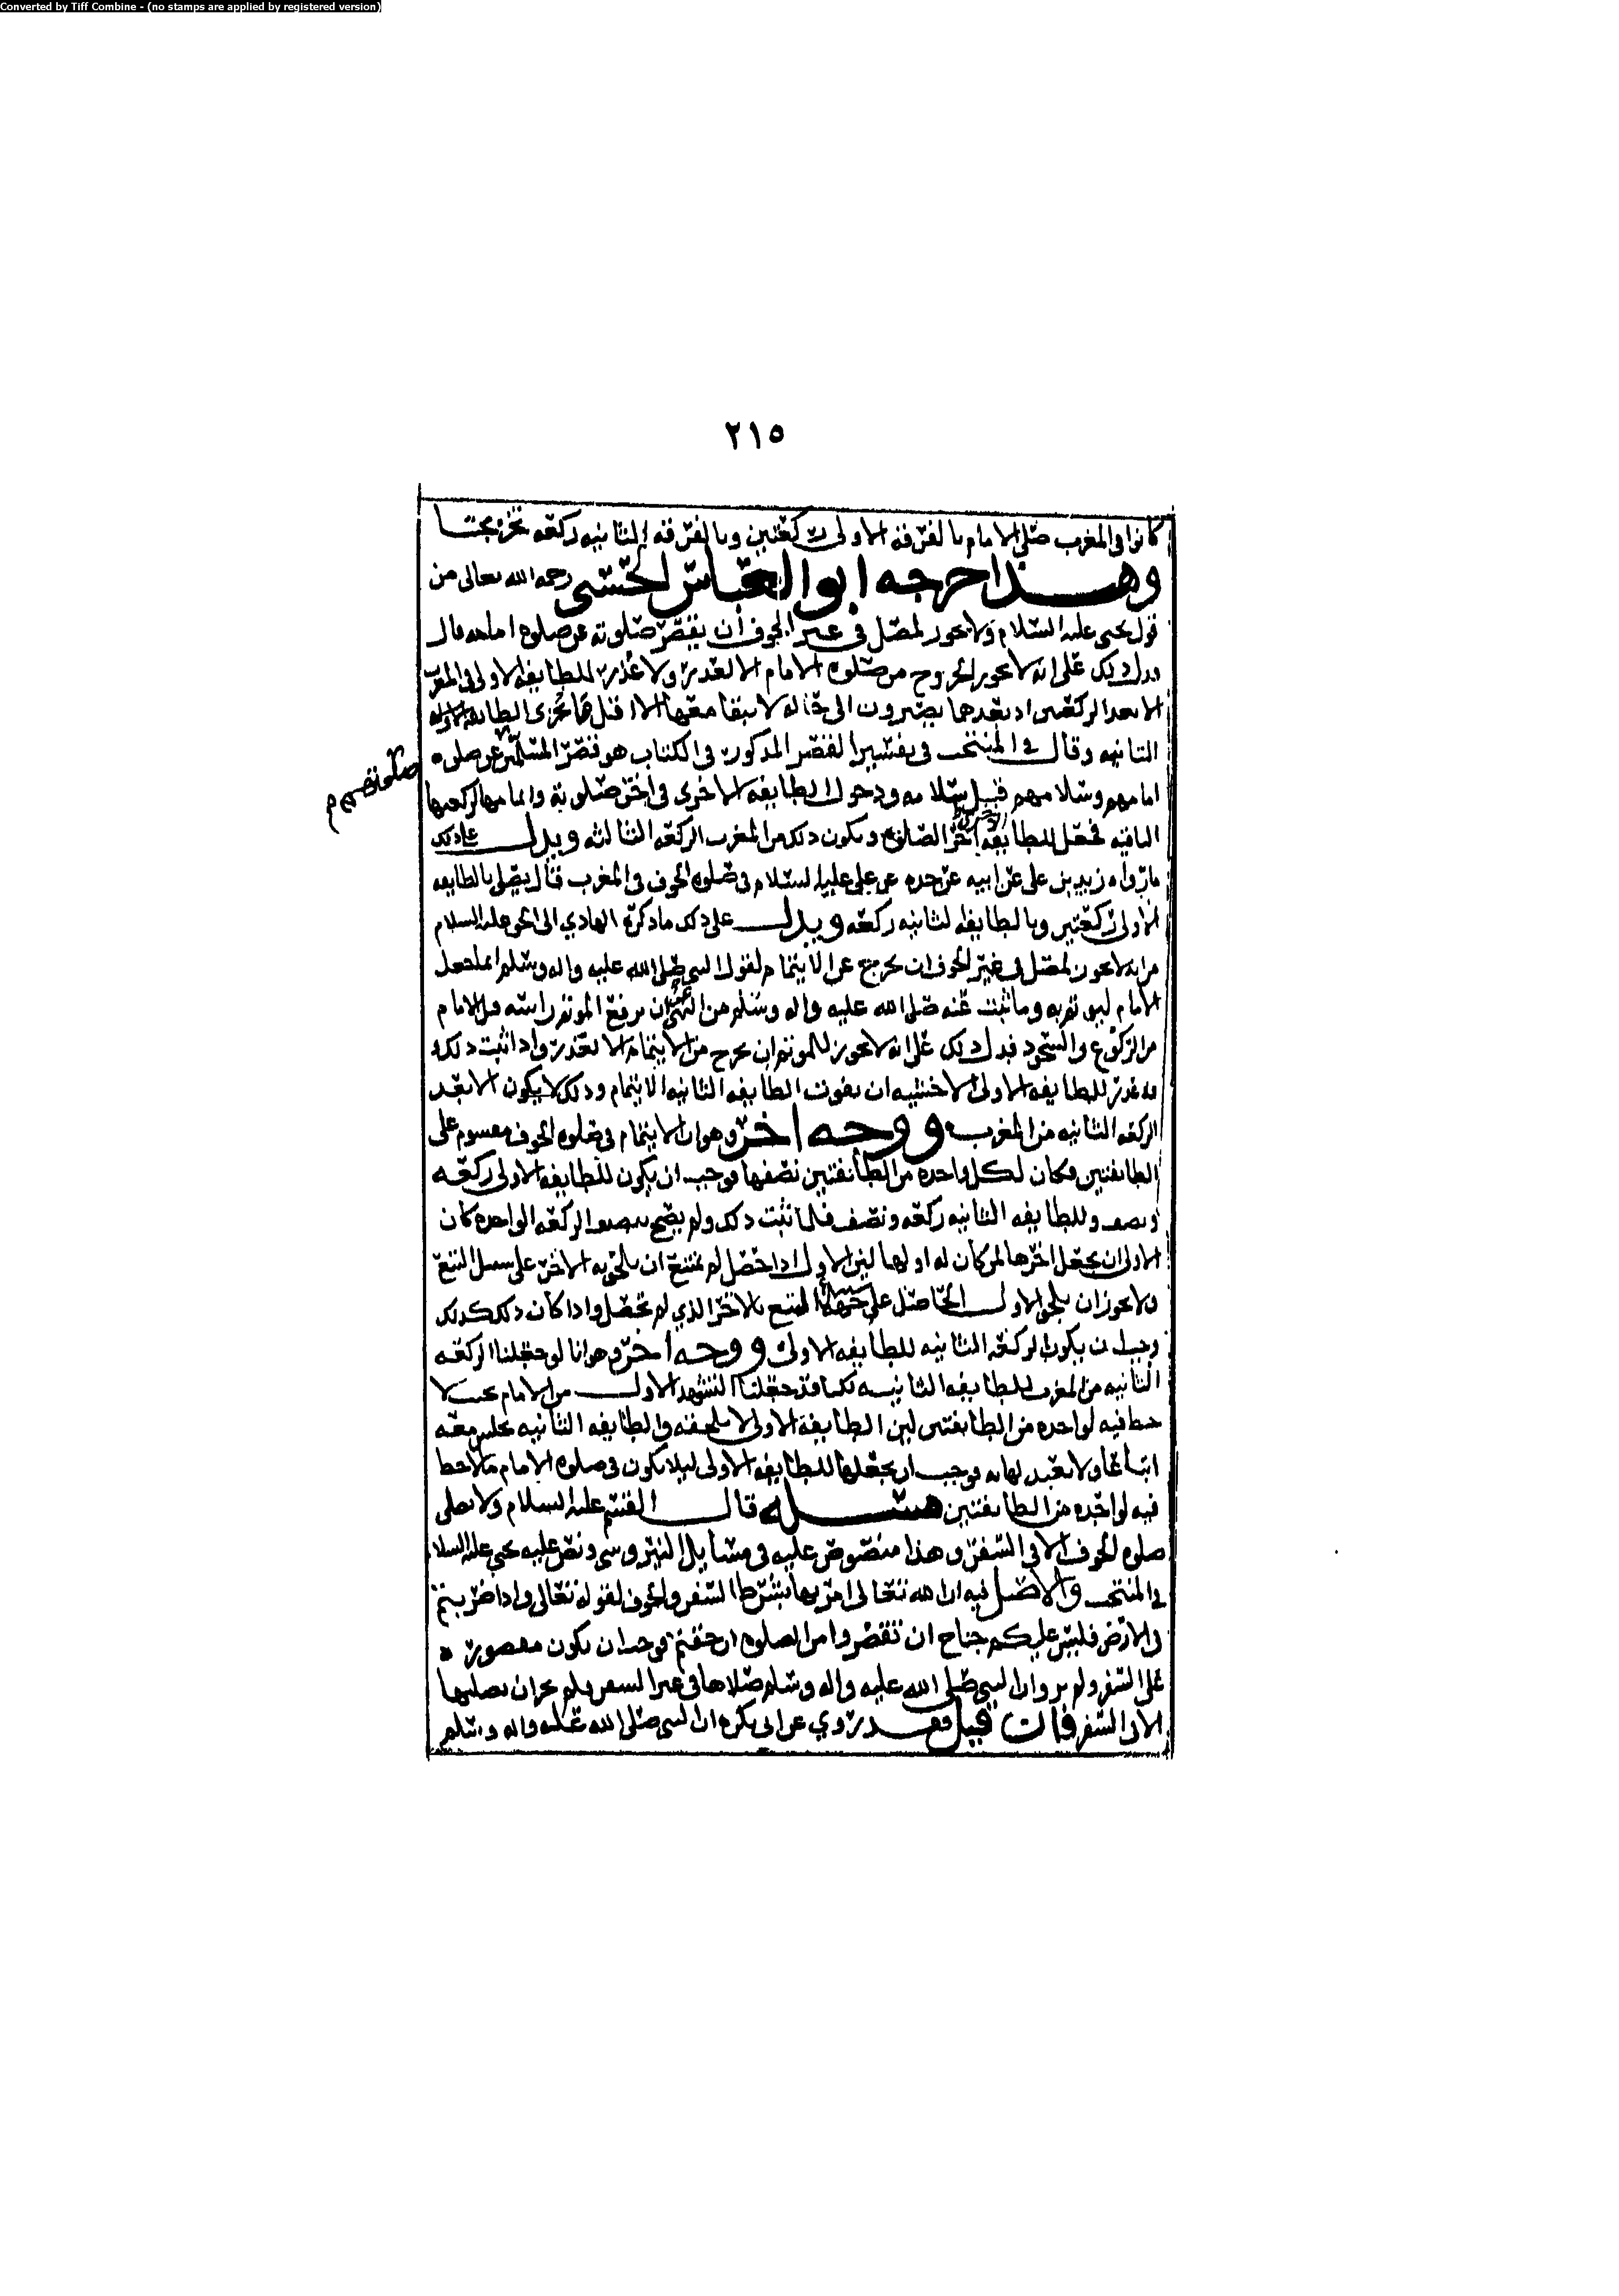 Converted by Tiff Combine - (no stamps are applied by registered version)
٢١٥
كانوا في المغرب صلى الامام بالفرقة الاولى ركعتين وبالفرقه الثانيه ركعه تخريجا
وهذا خرجه ابو العباس الحسني رحمه الله تعالى من
قول يحيى عليه السلام ولا يجوز لمصل في غير الخوف ان يقصر صلوته عن صلوة امامه قال
ودل ذلك على انه لا يجوز الخروج من صلوة الامام الا لعذر ولا عذر للطايفه الاولى في المغرب
الا بعد الركعتين اذ بعدهما يصيرون الى حالة لا يبقا معها الا اقل ما يجزى الطايفه
الثانيه وقال في المنتخب في تفسير القصر المذكور في الكتاب هو قصر المسلمين عن صلوه
صلوتهم م
امامهم وسلامهم قبل سلامه ودخول الطايفه الاخرى في اخر صلوته واتمامها لركعتها
الباقيه فجعل للطايفه الاخرى اخر الصلوة ويكون ذلك من المغرب الركعه الثالثه ويدل على ذلك
ما رواه زيد بن علي عن ابيه عن جده عن علي عليه السلام في صلوه الخوف في المغرب قال يصلي بالطايفه
الاولى ركعتين وبالطايفه الثانيه ركعه ويدل على ذلك ما ذكره الهادي الى الحق عليه السلام
من انه لا يجوز لمصل في غير الخوف ان يخرج عن الايتمام لقول النبي صلى الله عليه واله وسلم انما جعل
الامام ليوتم به وما ثبت عنه صلى الله عليه واله وسلم من النهي عن ان يرفع الموتم راسه قبل الامام
من الركوع والسجود فدل ذلك على انه لا يجوز للموتم ان يخرج من الايتمام الا لعذر واذا ثبت ذلك
فلا عذر للطايفه الاولى الا خشيه ان يفوت الطايفه الثانيه الايتمام وذلك لا يكون الا بعد
الركعه الثانيه من المغرب ووجه اخر وهو ان الايتمام في صلوه الخوف مقسوم على
الطايفتين فكان لكل واحده من الطائفتين نصفها فوجب ان يكون للطايفه الاولى ركعه
ونصف وللطايفه الثانيه ركعه ونصف فلما ثبت ذلك ولم يصح تبعيض الركعه الواحده كان
الاولى ان يجعل اخرها لمن كان له اولها لان الاول اذا حصل لم يمتنع ان يلحق به الاخر على سبيل التبع
ولا يجوز ان يلحق الاول الحاصل على جهة التبع بالاخر الذي لم يحصل واذا كان ذلك كذلك
وجب ان يكون الركعه الثانيه للطايفه الاولى ووجه اخر وهو انا لو جعلنا الركعه
الثانيه من المغرب للطايفه الثانيه لكنا قد جعلنا التشهد الاول من الامام بحيث لا
حظ فيه لواحده من الطايفتين لان الطايفة الاولى لا تلحقه والطايفه الثانيه تجلس معه
اتباعا ولا تعتد لها به فوجب ان يجعلها للطايفه الاولى ليلا يكون في صلوه الامام ما لا حظ
فيه لواحده من الطايفتين مسئله قال القسم عليه السلام ولا يصلى
صلوه الخوف الا في السفر وهذا منصوص عليه في مسايل النيروسي ونص عليه يحيى عليه السلام
في المنتخب والاصل فيه ان الله تعالى امر بها بشرط السفر والخوف لقوله تعالى واذا ضربتم
في الارض فليس عليكم جناح ان تقصروا من الصلوه ان خفتم فوجب ان يكون مقصورة
على السفر ولم يرو ان النبي صلى الله عليه واله وسلم صلاها في غير السفر فلم يجز ان يصليها
الا في السفر فان قيل فقد روي عن ابي بكره ان النبي صلى الله عليه واله وسلم